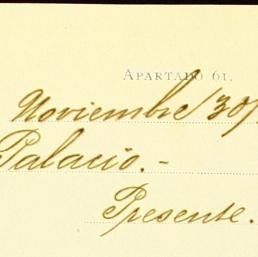 APARTADO 61.
Noviembre/30/
Palacio.-
Presente.